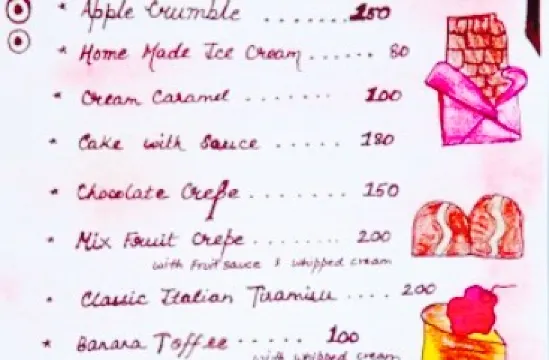 * Apple Crumble ....... 150
* Home Made Ice Cream ...... 80
* Cream Caramel ....... 100
* Cake with Sauce ..... 180
* Chocolate Crepe ........ 150
* Mix Fruit Crepe ......... 200
with Fruit sauce & whipped cream
* Classic Italian Tiramisu .... 200
* Banana Toffee ..... 100
with whipped cream